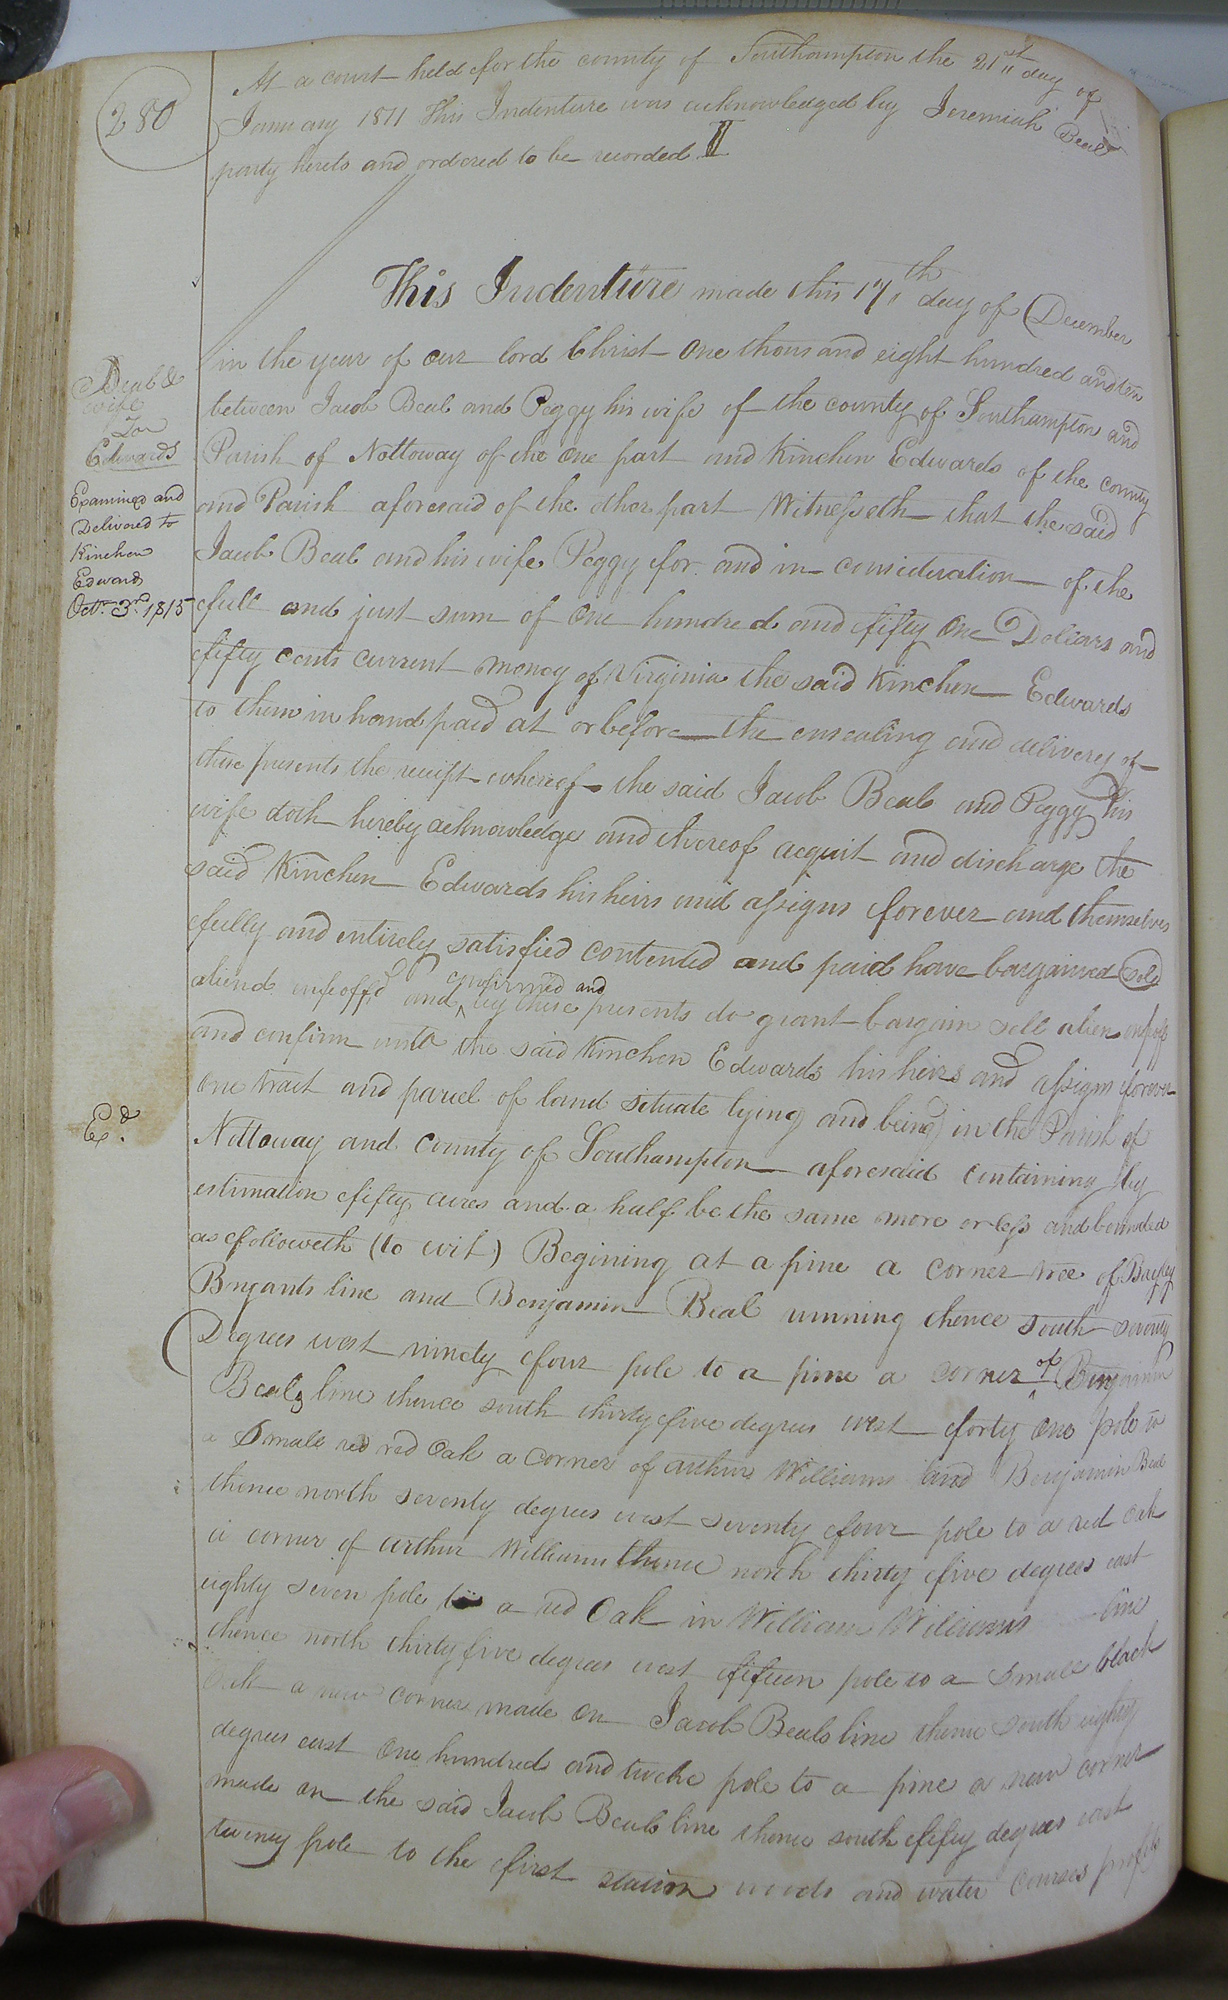 280
At a court held for the county of Southampton the 21st day of
January 1811 This Indenture was acknowledged by Jeremiah Beal
party hereto and ordered to be recorded
This Indenture made this 17th day of December
in the year of our lord Christ one thousand eight hundred and ten
between Jacob Beal and Peggy his wife of the county of Southampton and
Parish of Nottoway of the one part and Kinchen Edwards of the county
and Parish aforesaid of the other part Witnesseth that the said
Jacob Beal and his wife Peggy for and in consideration of the
full and just sum of One hundred and fifty One Dollars and
fifty cents current money of Virginia the said Kinchen Edwards
to them in hand paid at or before the ensealing and delivery of
these presents the receipt whereof the said Jacob Beal and Peggy his
wife doth hereby acknowledge and thereof acquit and discharge the
said Kinchen Edwards his heirs and assigns forever and themselves
fully and entirely satisfied contented and paid have bargained sold
aliend infeoffd and confirmed and by these presents do grant bargain sell alien infeoff
and confirm unto the said Kinchen Edwards his heirs and assigns forever
one tract and parcel of land situate lying and being in the Parish of
Nottoway and county of Southampton aforesaid containing by
estimation fifty acres and a half be the same more or less and bounded
as followeth (to wit) Begining at a pine a corner tree of
Bryants line and Benjamin Beal running thence south seventy
Degrees west ninety four pole to a pine a corner of Benjamin
Beals line thence south thirty five degrees west forty one pole to
a Small red red Oak a corner of arthur Williams land Benjamin Beal
thence north seventy degrees west seventy four pole to a red oak
a corner of arthur Williams thence north thirty five degrees east
eighty seven pole to a red Oak in William Williams line
thence north thirty five degrees west fifteen pole to a Small black
Oak a new corner made on Jacob Beals line thence south eighty
degrees east One hundred and twelve pole to a pine a new corner
made on the said Jacob Beals line thence south fifty degrees east
twenty pole to the first station woods and water courses profits
Beal &
wife
To
Edwards
Examined and
Delivered to
Kinchen
Edwards
Octr. 3rd 1815
Exd.